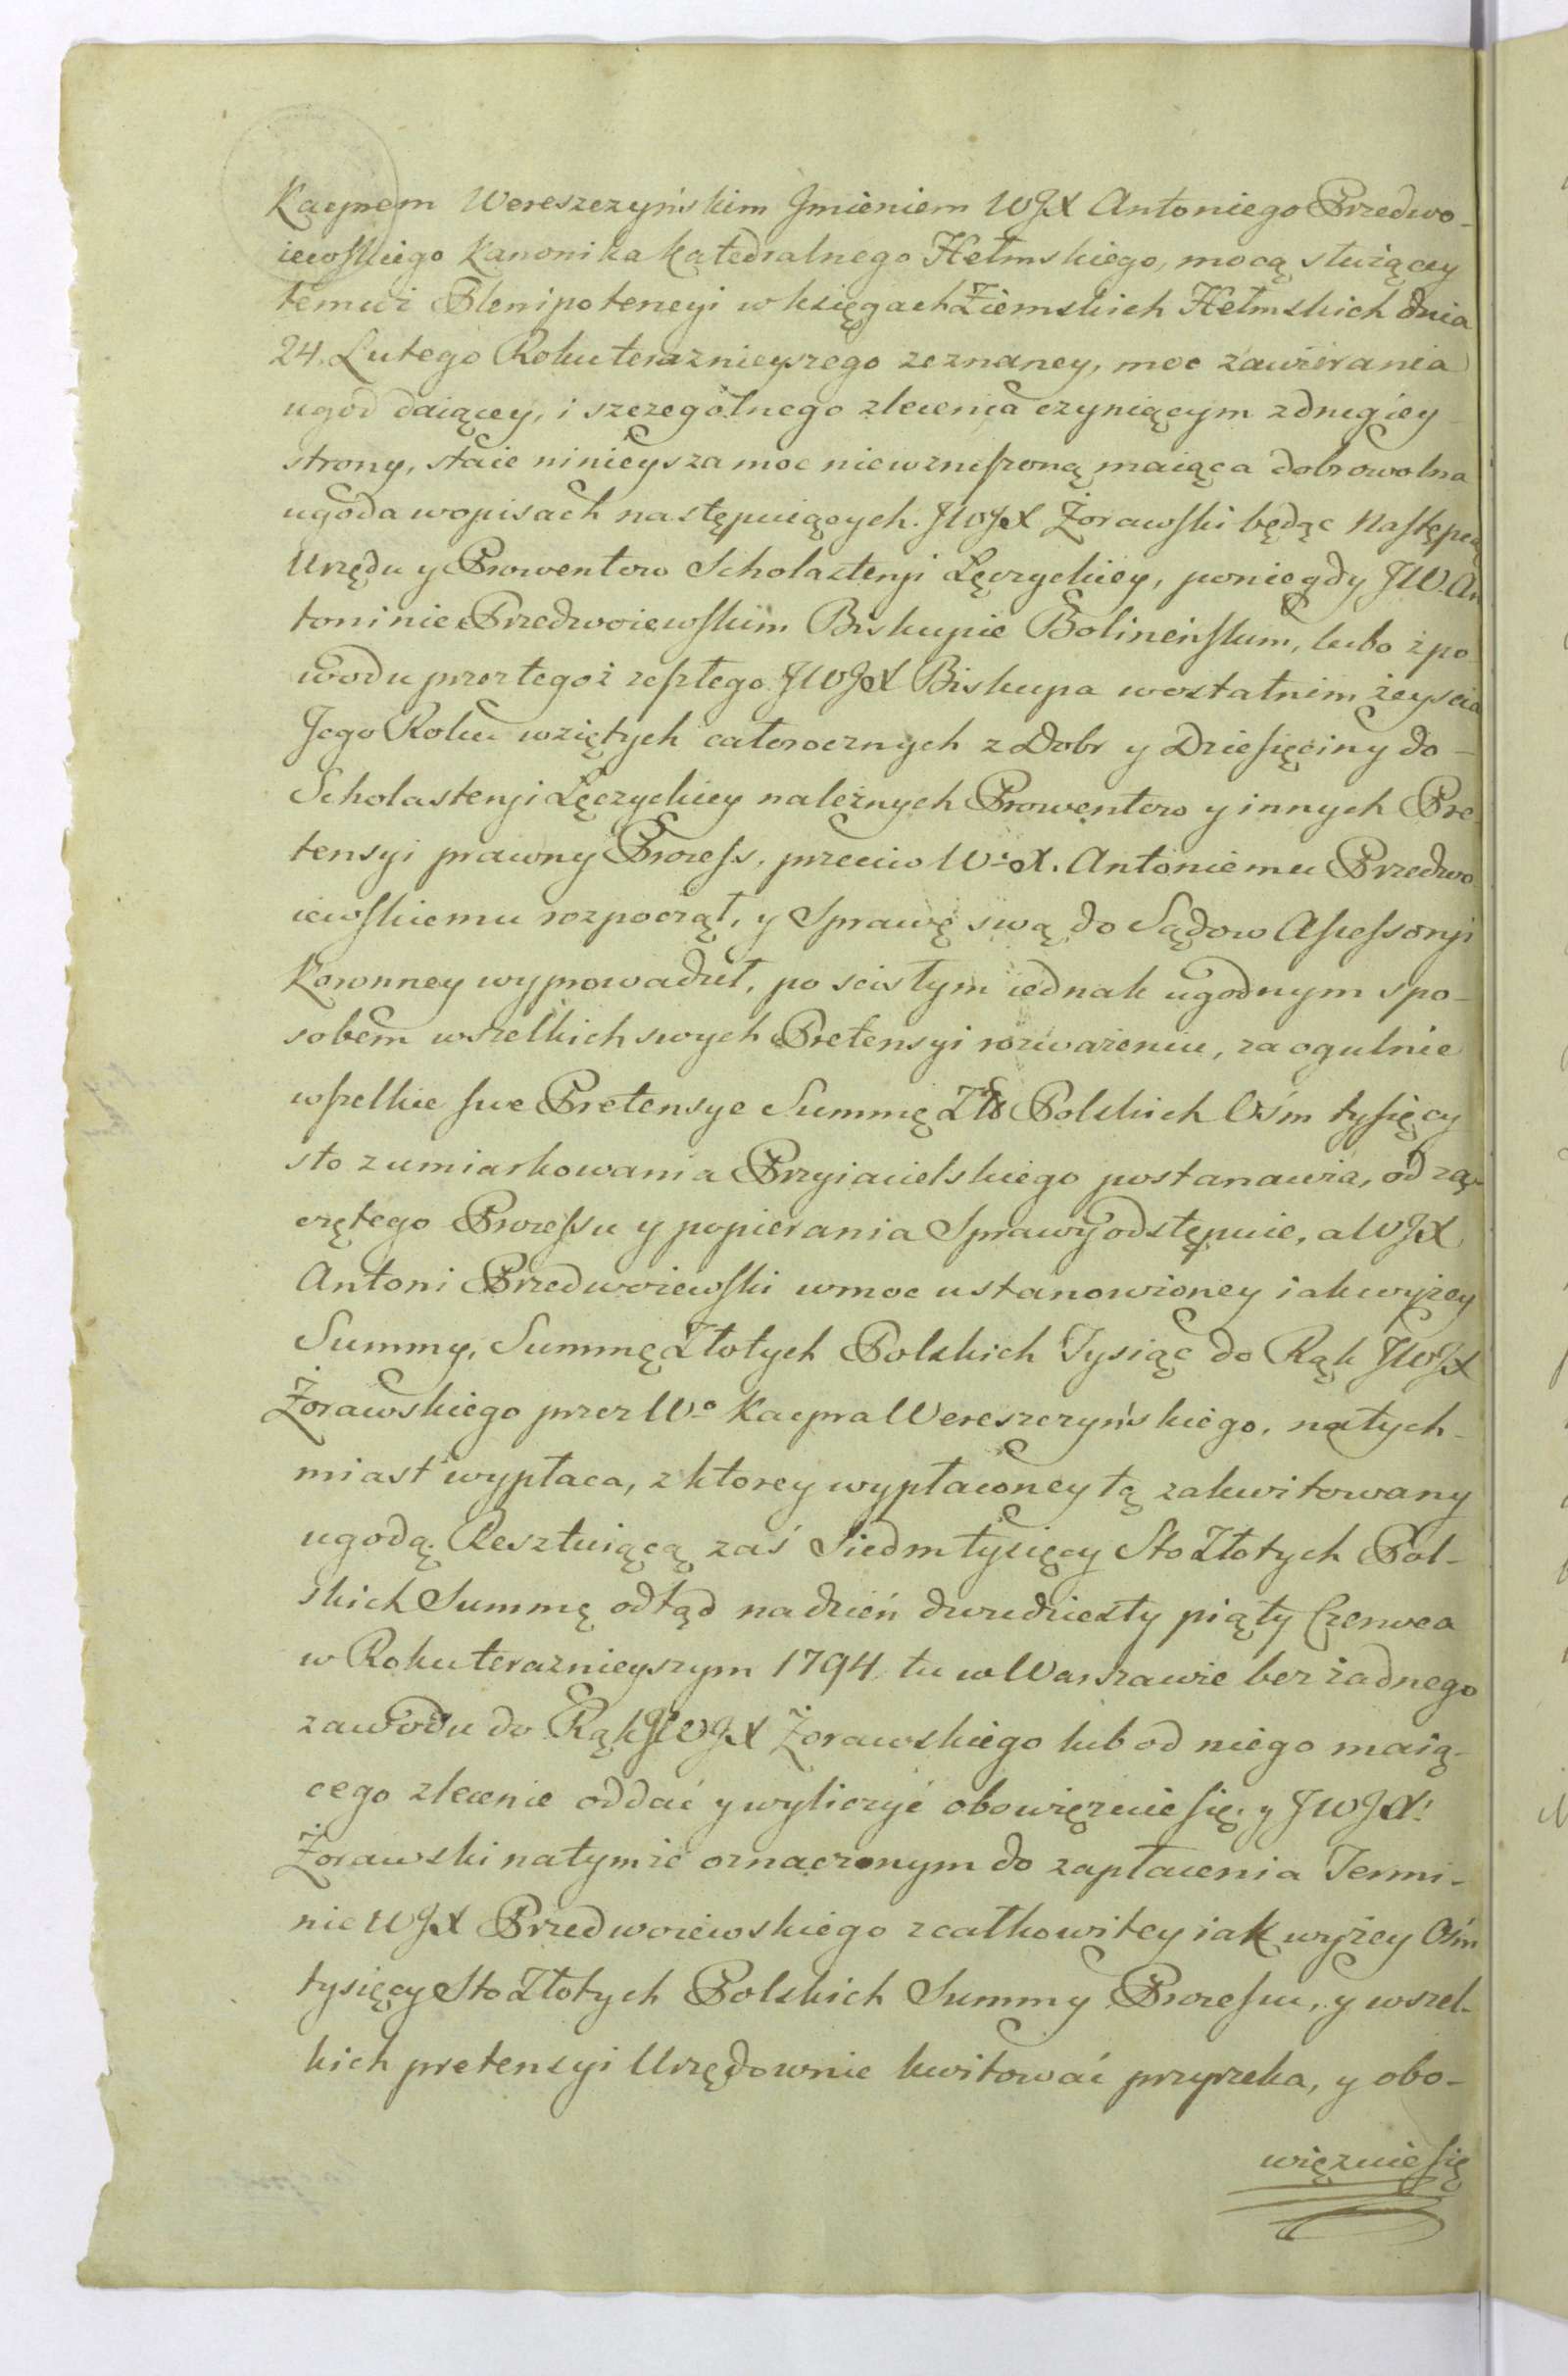 Kacprem Wereszczyńskim Jmieniem WJX Antoniego Przedwo-
iewskiego Kanonika Katedralnego Hełmskiego, mocą służącey
temuż Plenipotencyi w księgach Ziemskich Hełmskich dnia
24. Lutego Roku teraznieyszego zeznaney, moc zawierania
ugod daiącey, i szczegolnego zlecenia czyniącym z drugiey
strony, staie ninieysza moc niewzruszoną maiąca dobrowolna
ugoda w opisach następuiących. JWJX Żorawski będąc Następcą
Urzędu y Prowentow Scholasteryi Łęczyckiey, po niegdy JW. An
toninie Przedwoiewskim Biskupie Bolineńskim, lubo z po
wodu przez tegoż zeszłego JWJX Biskupa w ostatnim zeyscia
Jego Roku wziętych całorocznych z Dobr y Dziesięciny do-
Scholasteryi Łęczyckiey należnych Prowentow y innych Pre
tensyi prawny Process, przeciw Wo X. Antoniemu Przedwo
iewskiemu rozpoczął, y Sprawę swą do Sądow Assessoryi
Koronney wyprowadził, po scisłym iednak ugodnym spo-
sobem wszelkich swych Pretensyi rozważeniu, za ogulnie
wszelkie swe Pretensye Summę Zło Polskich Ośm tysięcy
sto z umiarkowania Przyiacielskiego postanawia, od za-
czętego Processu y popierania Sprawy odstępuie, a WJX
Antoni Przedwoiewski w moc ustanowioney iak wyżey
Summy, Summę Złotych Polskich Tysiąc do Rąk JWJX
Żorawskiego przez Wo Kacpra Wereszczyńskiego, natych-
miast wypłaca, z ktorey wypłaconey tą zakwitowany
ugodą. Resztuiącą zaś Siedm tysięcy Sto Złotych Pol-
skich Summę odtąd na dzień dwudziesty piąty Czerwca
w Roku teraznieyszym 1794 tu w Warszawie bez żadnego
zawodu do Rąk JWJX Żorawskiego lub od niego maią-
cego zlecenie oddać y wyliczyć obowięzuie się; y JWJX:
Żorawski na tymże oznaczonym do zapłacenia Termi-
nie WJX Przedwoiewskiego z całkowitey iak wyżey Ośm
tysięcy Sto Złotych Polskich Summy Processu, y wszel-
kich pretensyi Urzędownie kwitować przyrzeka, y obo-
więzuie się